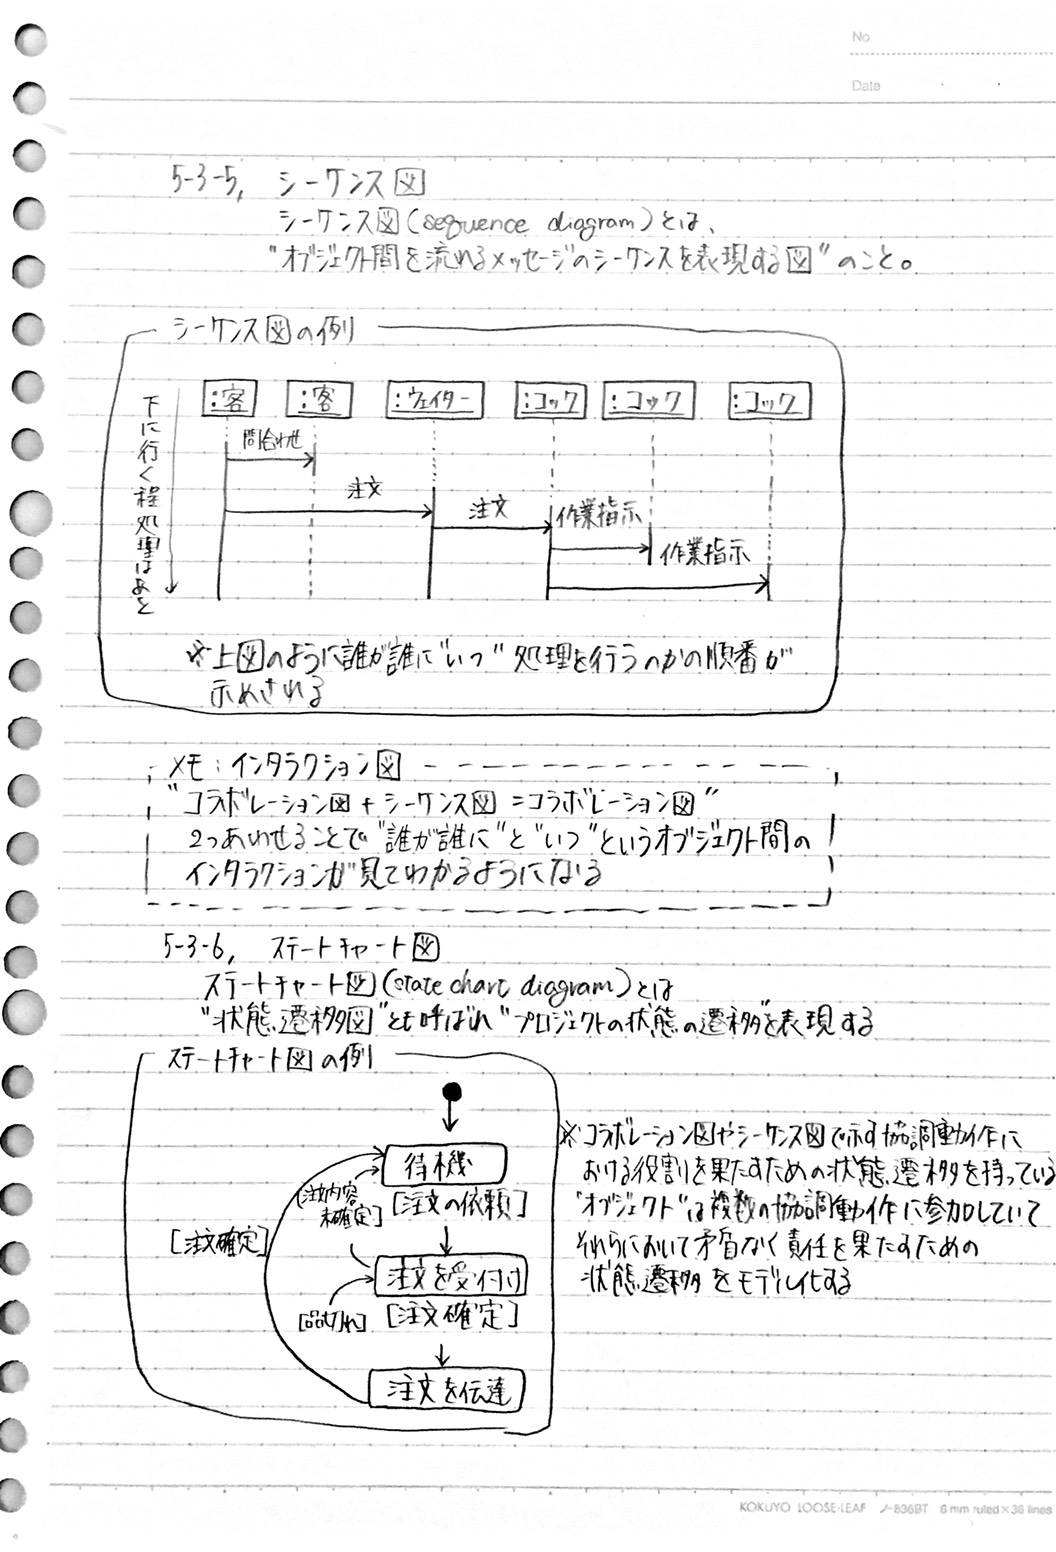 No
Date
5-3-5, シーケンス図
シーケンス図(sequence diagram)とは、
"オブジェクト間を流れるメッセージのシーケンスを表現する図"のこと。
シーケンス図の例
下に行く程処理はあと
:客 :客 :ウェイター :コック :コック :コック
問合わせ
注文
注文
作業指示
作業指示
※上図のように誰が誰に"いつ"処理を行うのかの順番が
示めされる
メモ:インタラクション図
"コラボレーション図+シーケンス図=コラボレーション図"
2つあわせることで"誰が誰に"と"いつ"というオブジェクト間の
インタラクションが見てわかるようになる
5-3-6, ステートチャート図
ステートチャート図(state chart diagram)とは
"状態遷移図"とも呼ばれ"プロジェクトの状態の遷移"を表現する
ステートチャート図の例
待機
[注文内容
未確定]
[注文の依頼]
[注文確定]
注文を受付け
[品切れ]
[注文確定]
注文を伝達
※コラボレーション図やシーケンス図で示す協調動作に
おける役割を果たすための状態遷移を持っている
"オブジェクト"は複数の協調動作に参加していて
それらにおいて矛盾なく責任を果たすための
状態遷移をモデル化する
KOKUYO LOOSE-LEAF ノ-836BT 6 mm ruled×36 lines